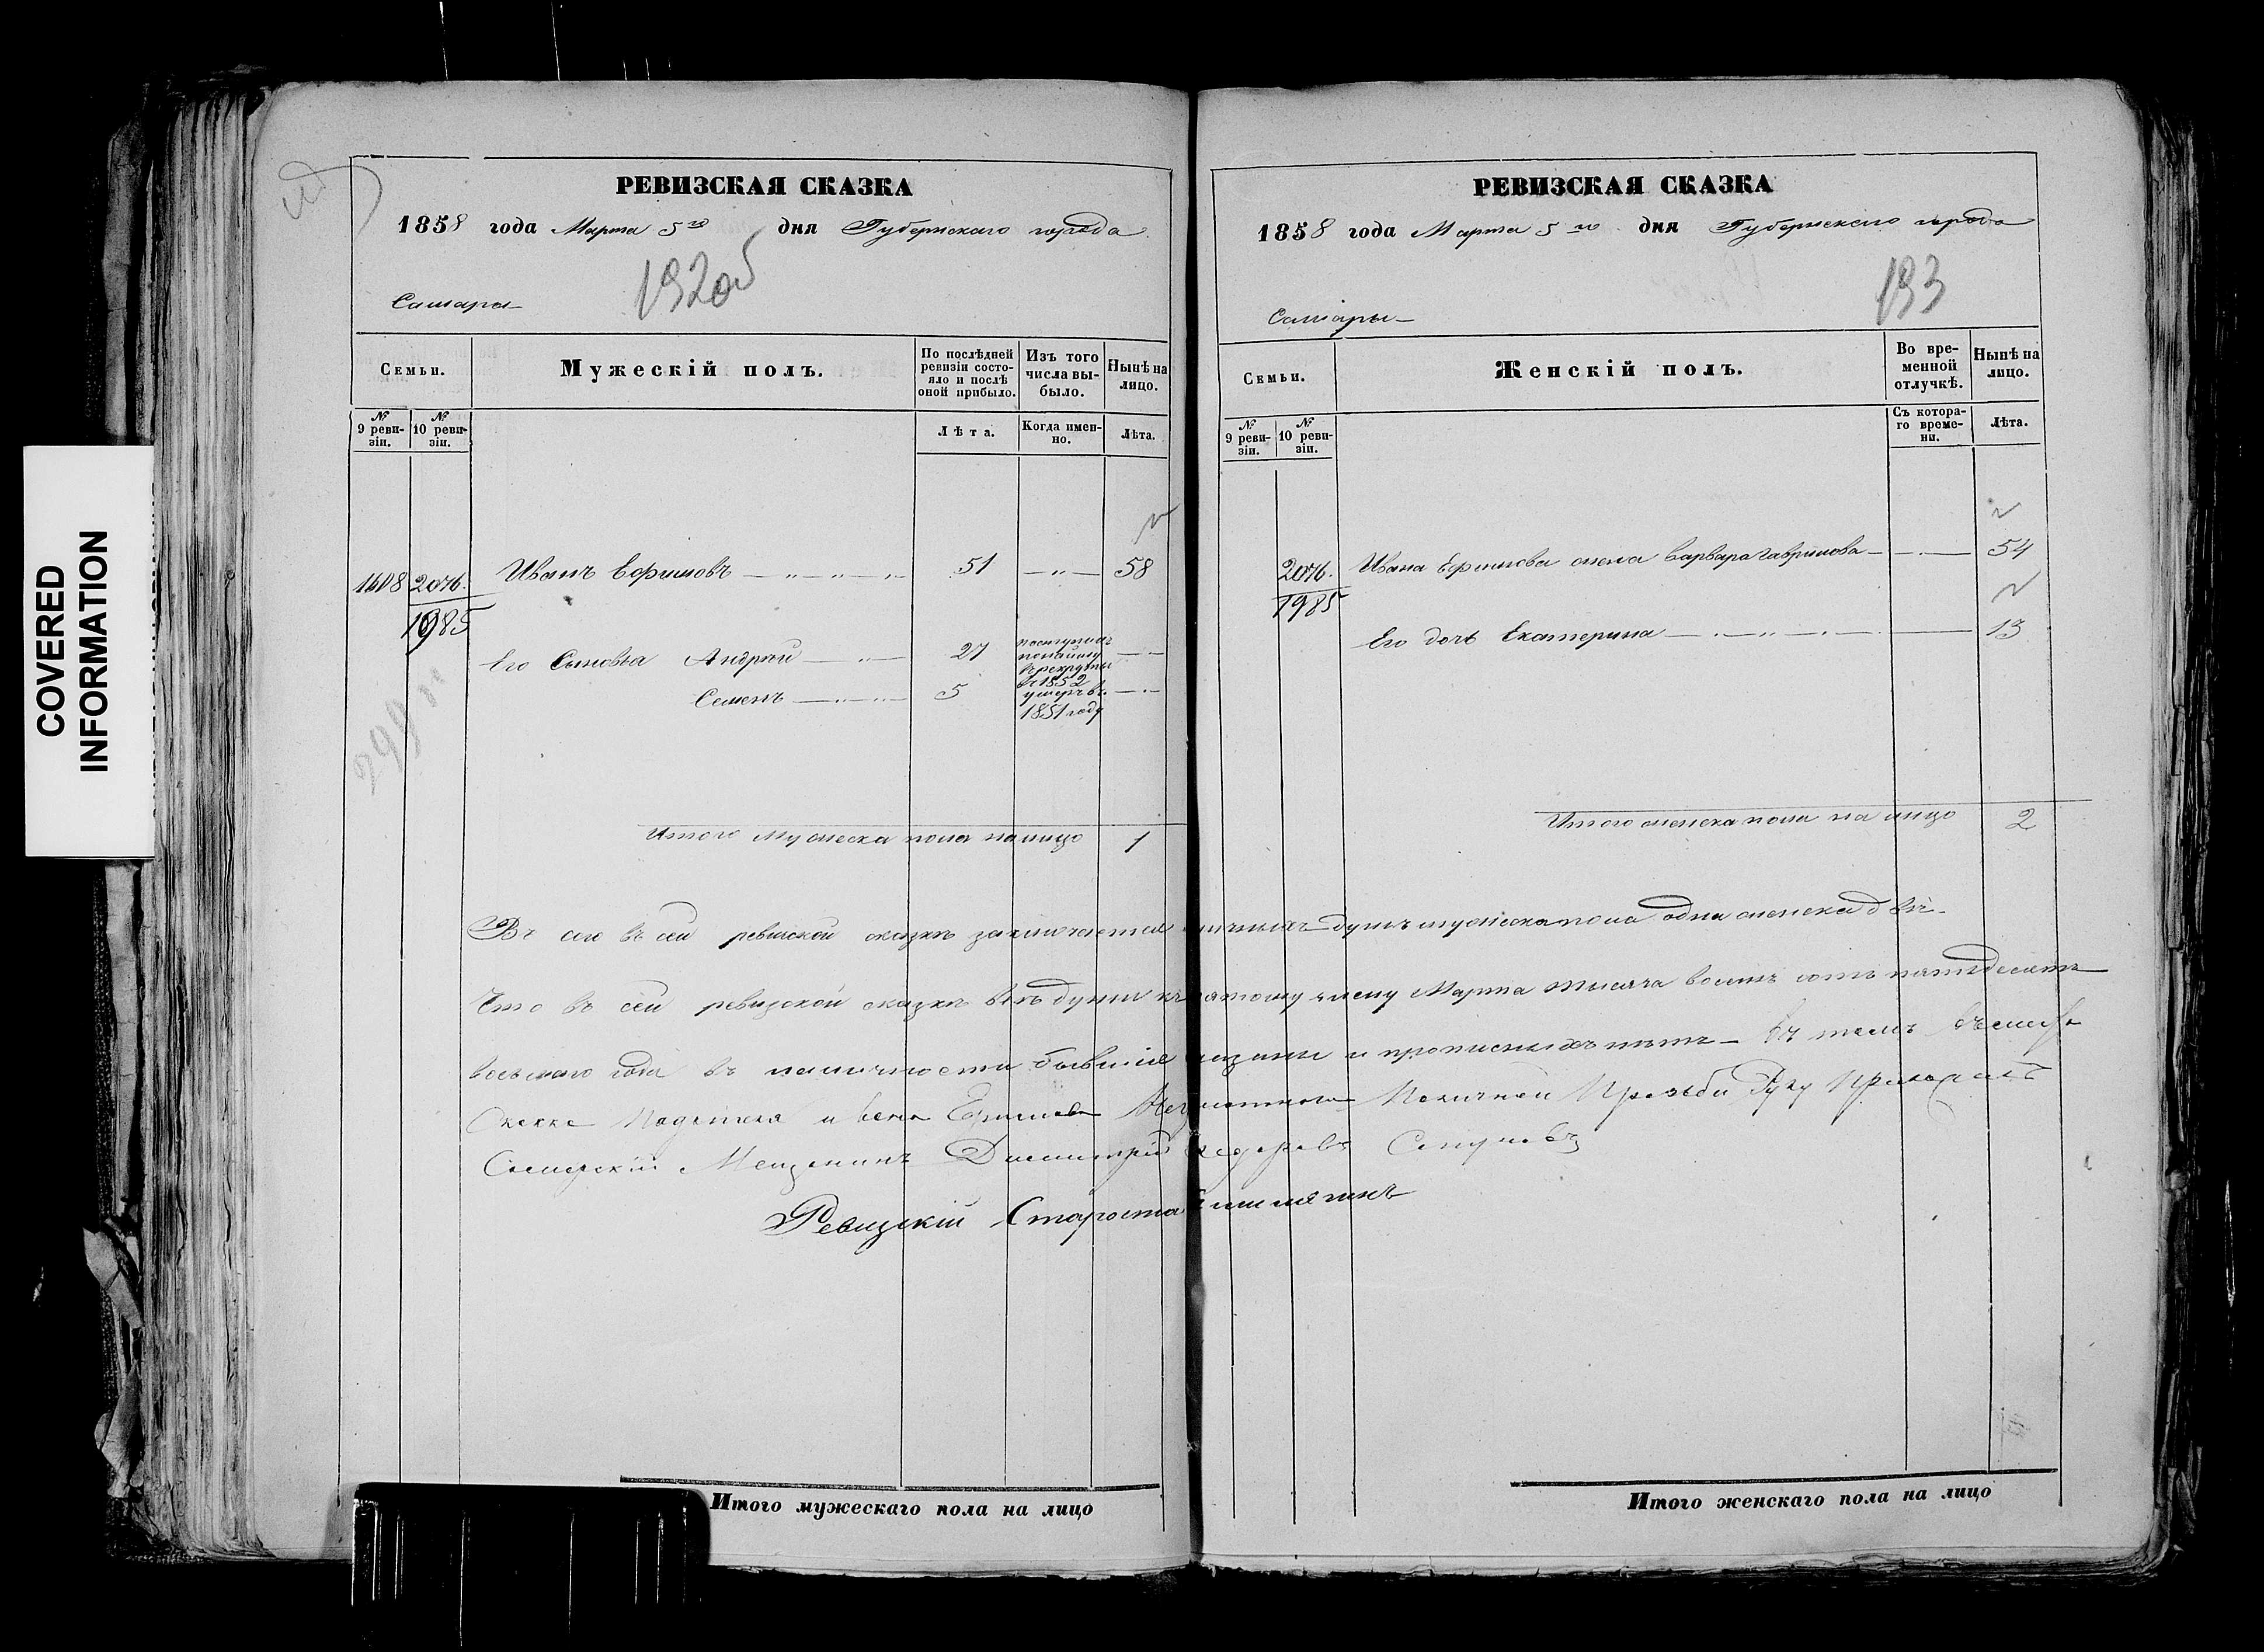 COVERED
INFORMATION
РЕВИЗСКАЯ СКАЗКА
1858 года Марта 5го дня Губернскаго города
192об
Самары
Семьи.
Мужескій полъ.
По послѣдней ревизіи состояло и послѣ оной прибыло.
Изъ того числа выбыло.
Нынѣ на лицо.
№ 9 ревизіи.
№ 10 ревизіи.
Лѣта.
Когда именно.
Лѣта.
1608 2076. Иванъ Ефимовъ 51 58
1985
Его Сыновья Андрей 27 поступилъ
в рекруты
въ 1852
Семенъ 5 умеръ въ
1851 году
Итого Мужеска пола налицо 1
РЕВИЗСКАЯ СКАЗКА
1858 года Марта 5го дня Губернскаго города
193
Самары
Семьи.
Женскій полъ.
Во временной отлучкѣ.
Нынѣ на лицо.
№ 9 ревизіи.
№ 10 ревизіи.
Съ котораго времени.
Лѣта.
2076. Ивана Ефимова жена Варвара Гаврилова 54
1985
Его дочь Екатерина 13
Итого женска пола на лицо 2
сей ревизской сказкѣ заключается душъ мужеска пола одна женска двѣ
Что въ сей ревизской сказкѣ всѣ души къ пятому числу Марта тысяча восемь сотъ пятьдесятъ
восьмаго года въ наличности бывшіе показаны и прописныхъ нѣтъ въ томъ
Ефимова неграмотнаго по личной прозьби Руку Приложилъ
Самарскій Мещенинъ Димитрій Федоровъ
Ревизскій Староста
Итого мужескаго пола на лицо
Итого женскаго пола на лицо